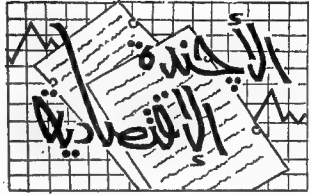 الأجندة
الإقتصادية